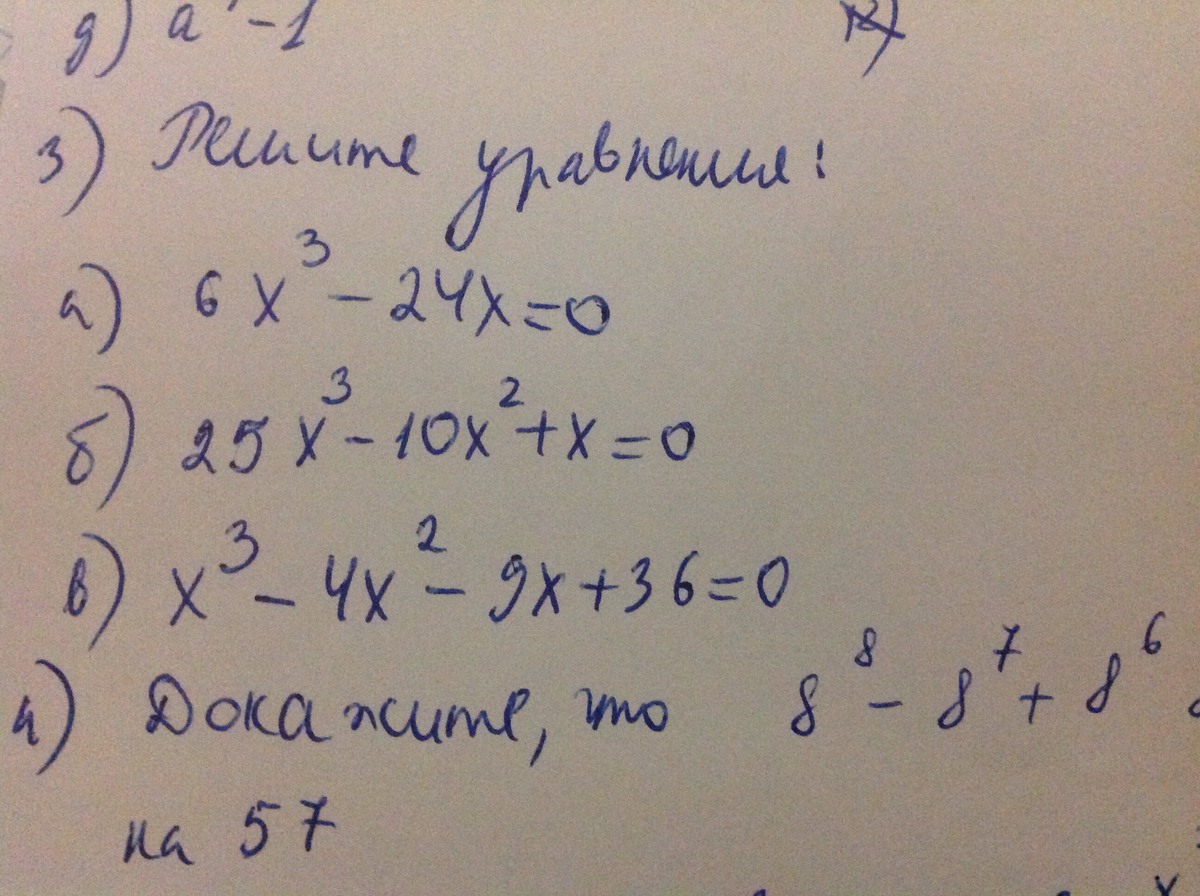 д) a - 1
3) Решите уравнения:
а) 6x³ - 24x = 0
б) 25x³ - 10x² + x = 0
в) x³ - 4x² - 9x + 36 = 0
4) Докажите, что 8⁸ - 8⁷ + 8⁶
на 57